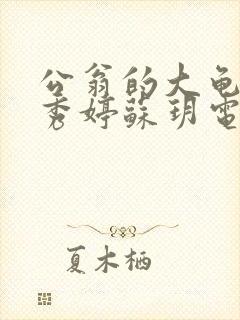 公翁的大龟
秀婷蘇玥電
夏木栖